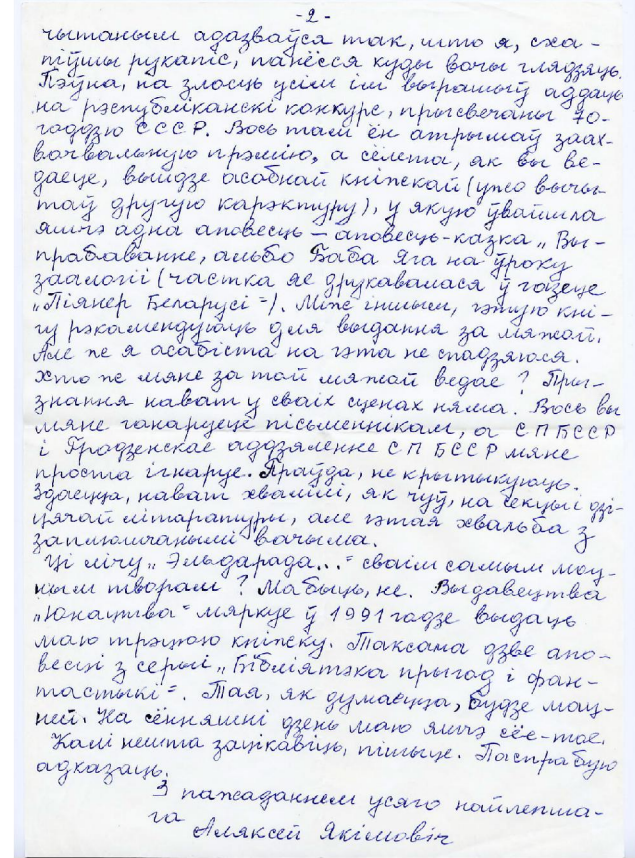 -2-
чытаным адазваўся так, што я, сха-
піўшы рукапіс, панёсся куды вочы глядзяць.
Пэўна, на злосць усім ім вырашыў аддаць
на рэспубліканскі конкурс, прысвечаны 70-
годдзю СССР. Вось там ён атрымаў заах-
вочвальную прэмію, а сёлета, як вы ве-
даеце, выйдзе асобнай кніжкай (ужо вычы-
таў другую карэктуру), у якую ўвайшла
яшчэ адна аповесць — аповесць-казка „Вы-
прабаванне, альбо Баба Яга на ўроку
заалогіі (частка яе друкавалася ў газеце
„Піянер Беларусі“). Між іншым, гэтую кні-
гу рэкамендуюць для выдання за мяжой.
Але ж я асабіста на гэта не спадзяюся.
Хто ж мяне за той мяжой ведае? Пры-
знання нават у сваіх сценах няма. Вось вы
мяне ганаруеце пісьменнікам, а СПБССР
і Гродзенскае аддзяленне СП БССР мяне
проста ігнаруе. Праўда, не крытыкуюць.
Здаецца, нават хвалілі, як чуў, на секцыі дзі-
цячай літаратуры, але гэтая хвальба з
заплюшчанымі вачыма.
Ці лічу „Эльдарада...“ сваім самым моц-
ным творам? Мабыць, не. Выдавецтва
„Юнацтва“ мяркуе ў 1991 годзе выдаць
маю трэцюю кніжку. Таксама дзве апо-
весці з серыі „Бібліятэка прыгод і фан-
тастыкі“. Тая, як думаецца, будзе мац-
ней. На сённяшні дзень маю яшчэ сёе-тое.
Калі нешта зацікавіць, пішыце. Паспрабую
адказаць.
З пажаданнем усяго найлепша-
га
Аляксей Якімовіч